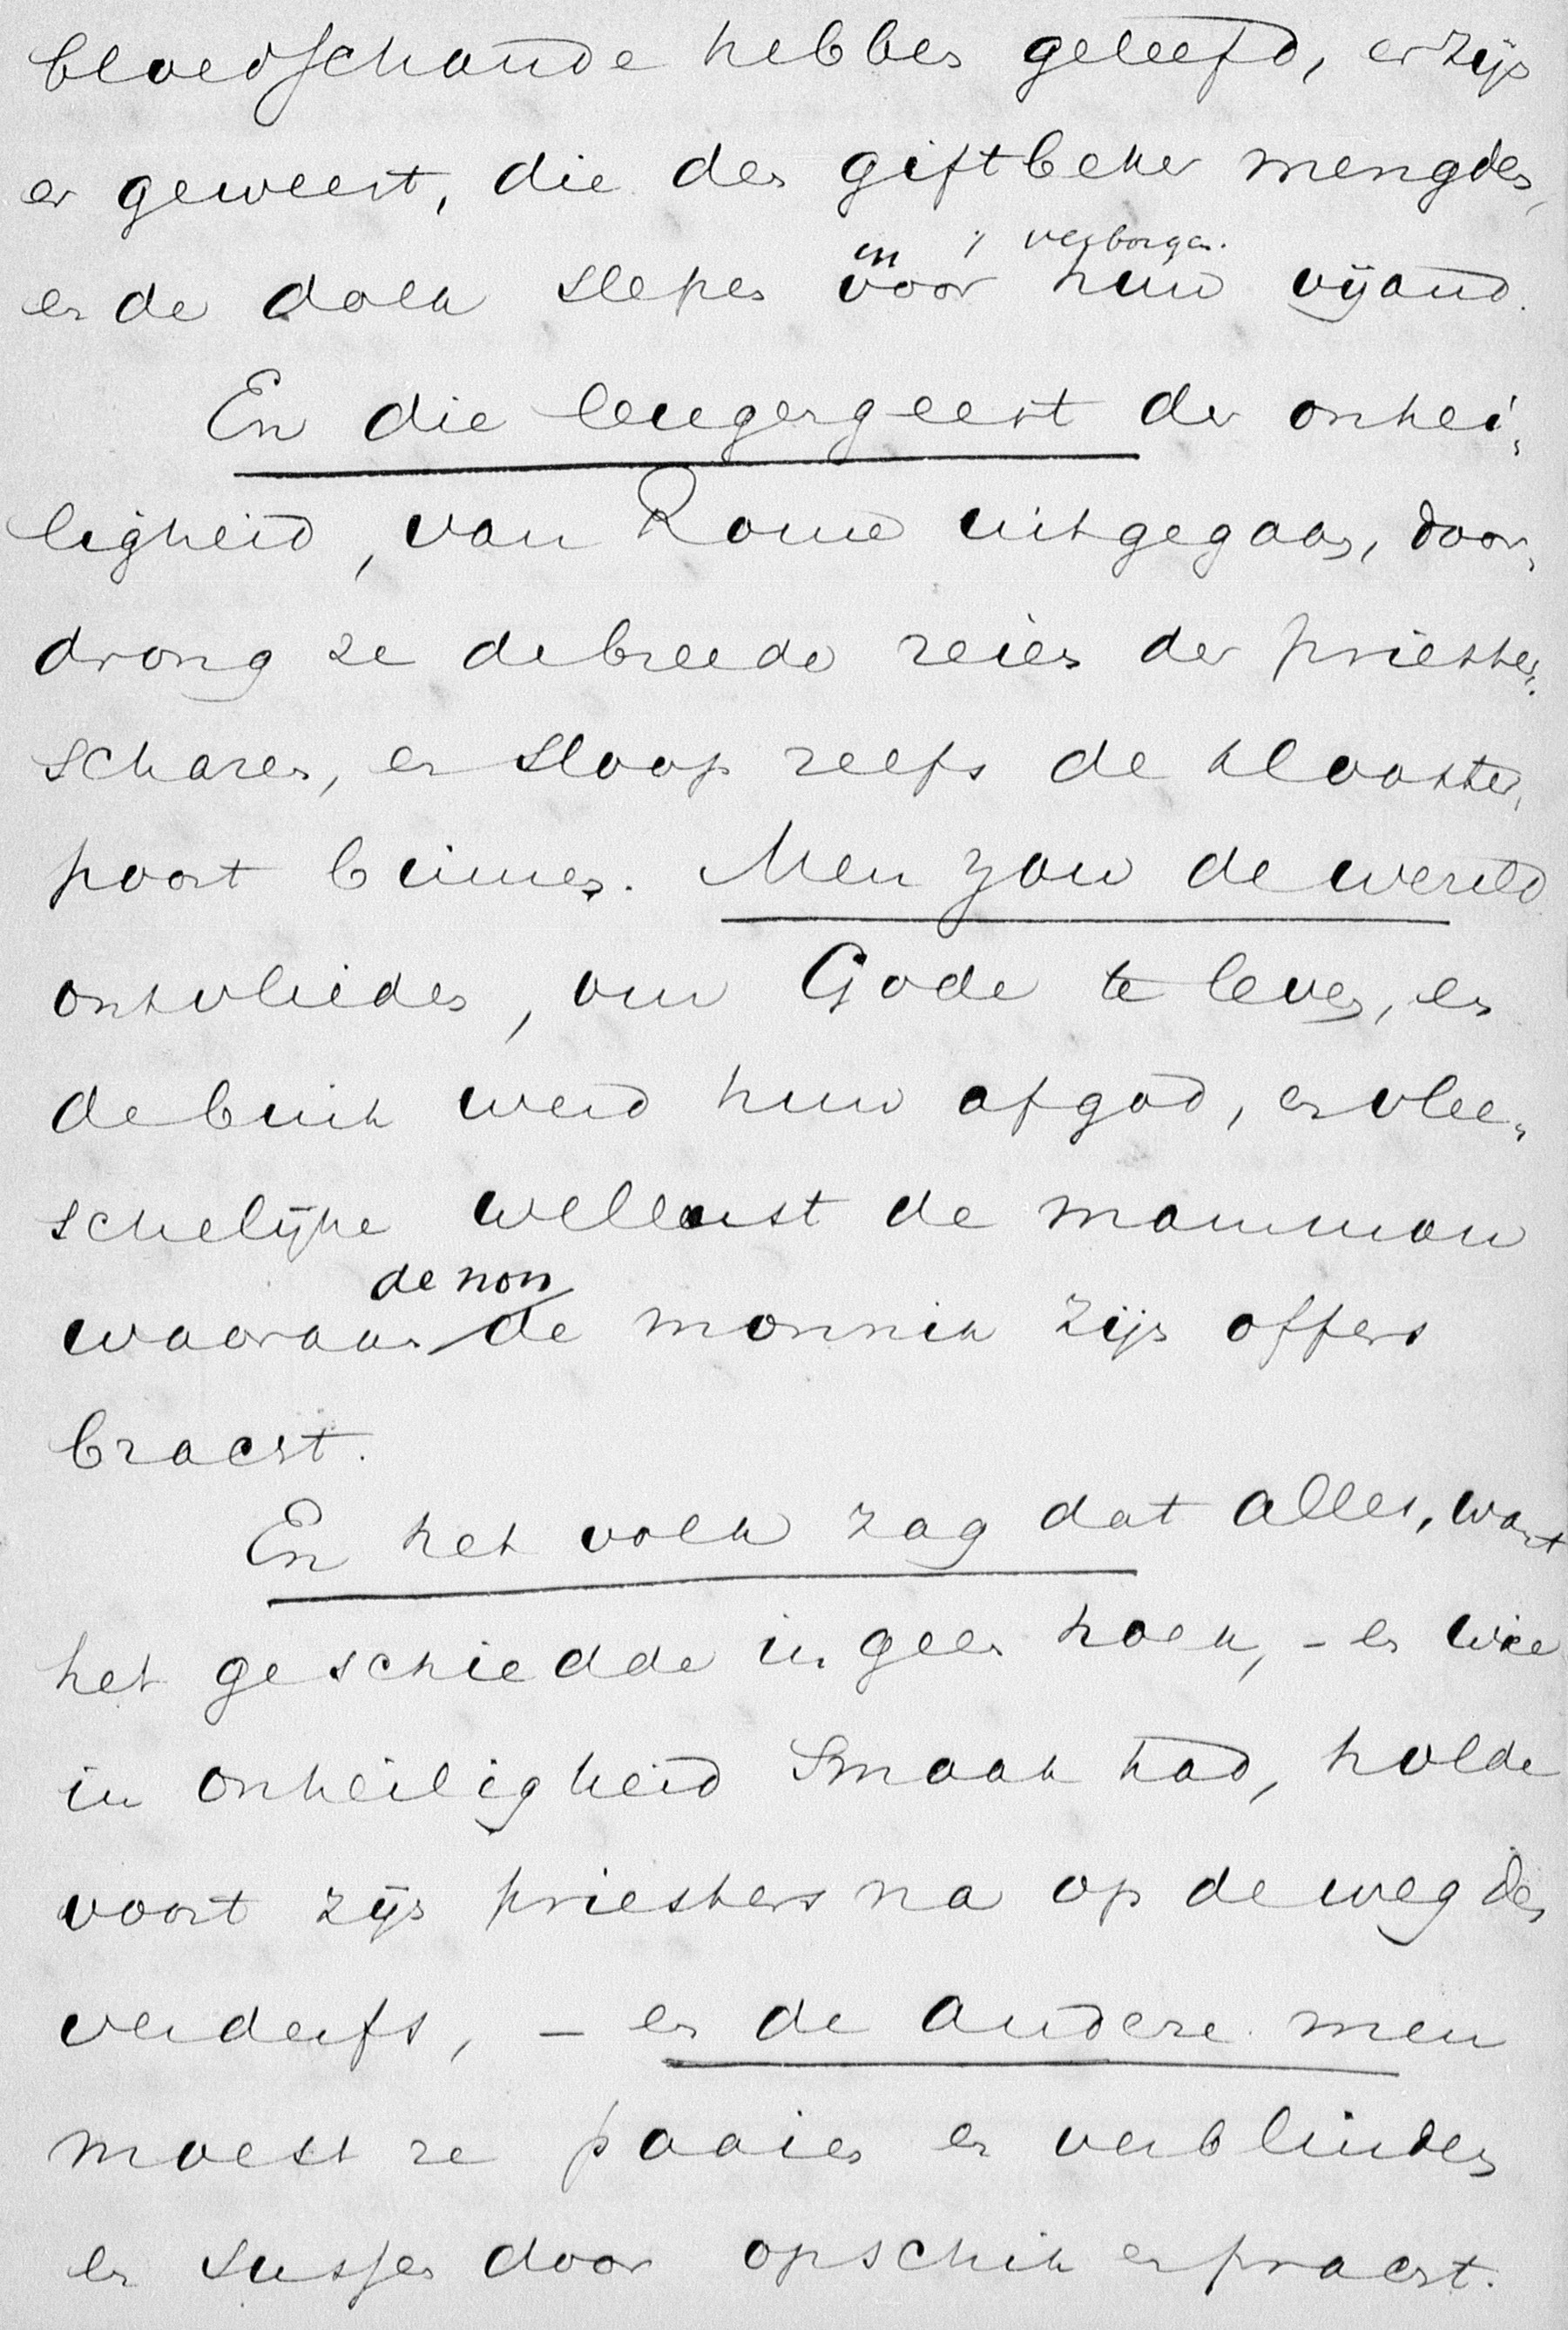 bloedschande hebben geleefd, er zijn
er geweest, die den giftbeker mengden,
en de dolk slepen voor hun vijand.
in 't verborgen.
En die leugengeest der onhei„
ligheid, van Rome uitgegaan, door„
drong ze de breede reien der priester„
scharen, en sloop zelfs de klooster„
poort binnen. Men zou de wereld
ontvlieden, om Gode te leven, en
de buik werd hun afgod, en vlee„
schelijke wellust de mammon
de non
waaraan de monnik zijn offers
bracht.
En het volk zag dat alles, want
het geschiedde in geen hoek, – en wie
in onheiligheid smaak had, holde
voort zijn priesters na op de weg des
verderfs, – en de andere men
moest ze paaien en verblinden
en sussen door opschik en pracht.